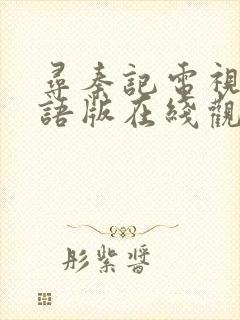 尋秦記電視
語版在綫觀
彤紫醬